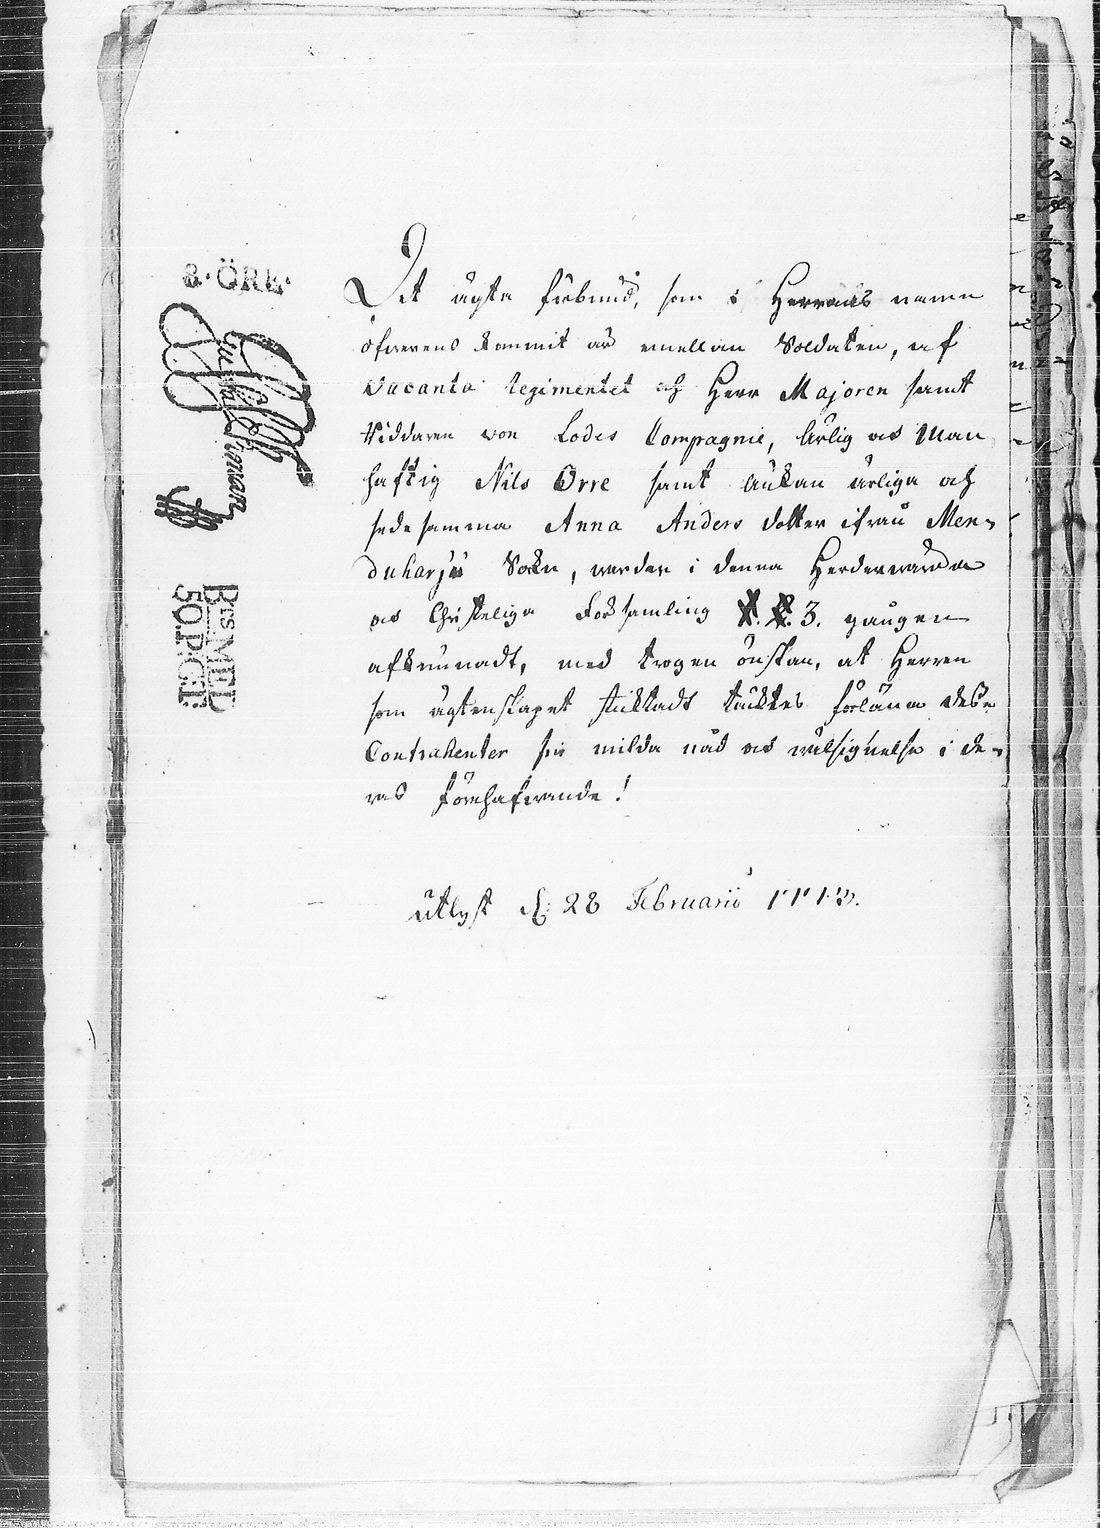 8. ÖRE.
Gustaf Ekman
Brs MED
50. P: CT:
Det ägta förbund, som i Herrans namn
öfverens kommit är emellan Soldaten, af
Vacanta Regimentet och Herr Majoren samt
Riddaren von Lodes Compagnie, Ärlig och Man
haftig Nils Orre samt Änkan ärliga och
sedesamma Anna Anders dotter ifrån Men-
duharju Sokn, warder i denna Herdewärda
och Christeliga Församling 3. gången
afkunnadt, med trogen önskan, at Herren
som ägtenskapet sticktadt täcktes förläna dese
Contrahenter sin milda nåd och wälsignelse i de-
ras förehafwande!
Utlyst d: 28 Februarii